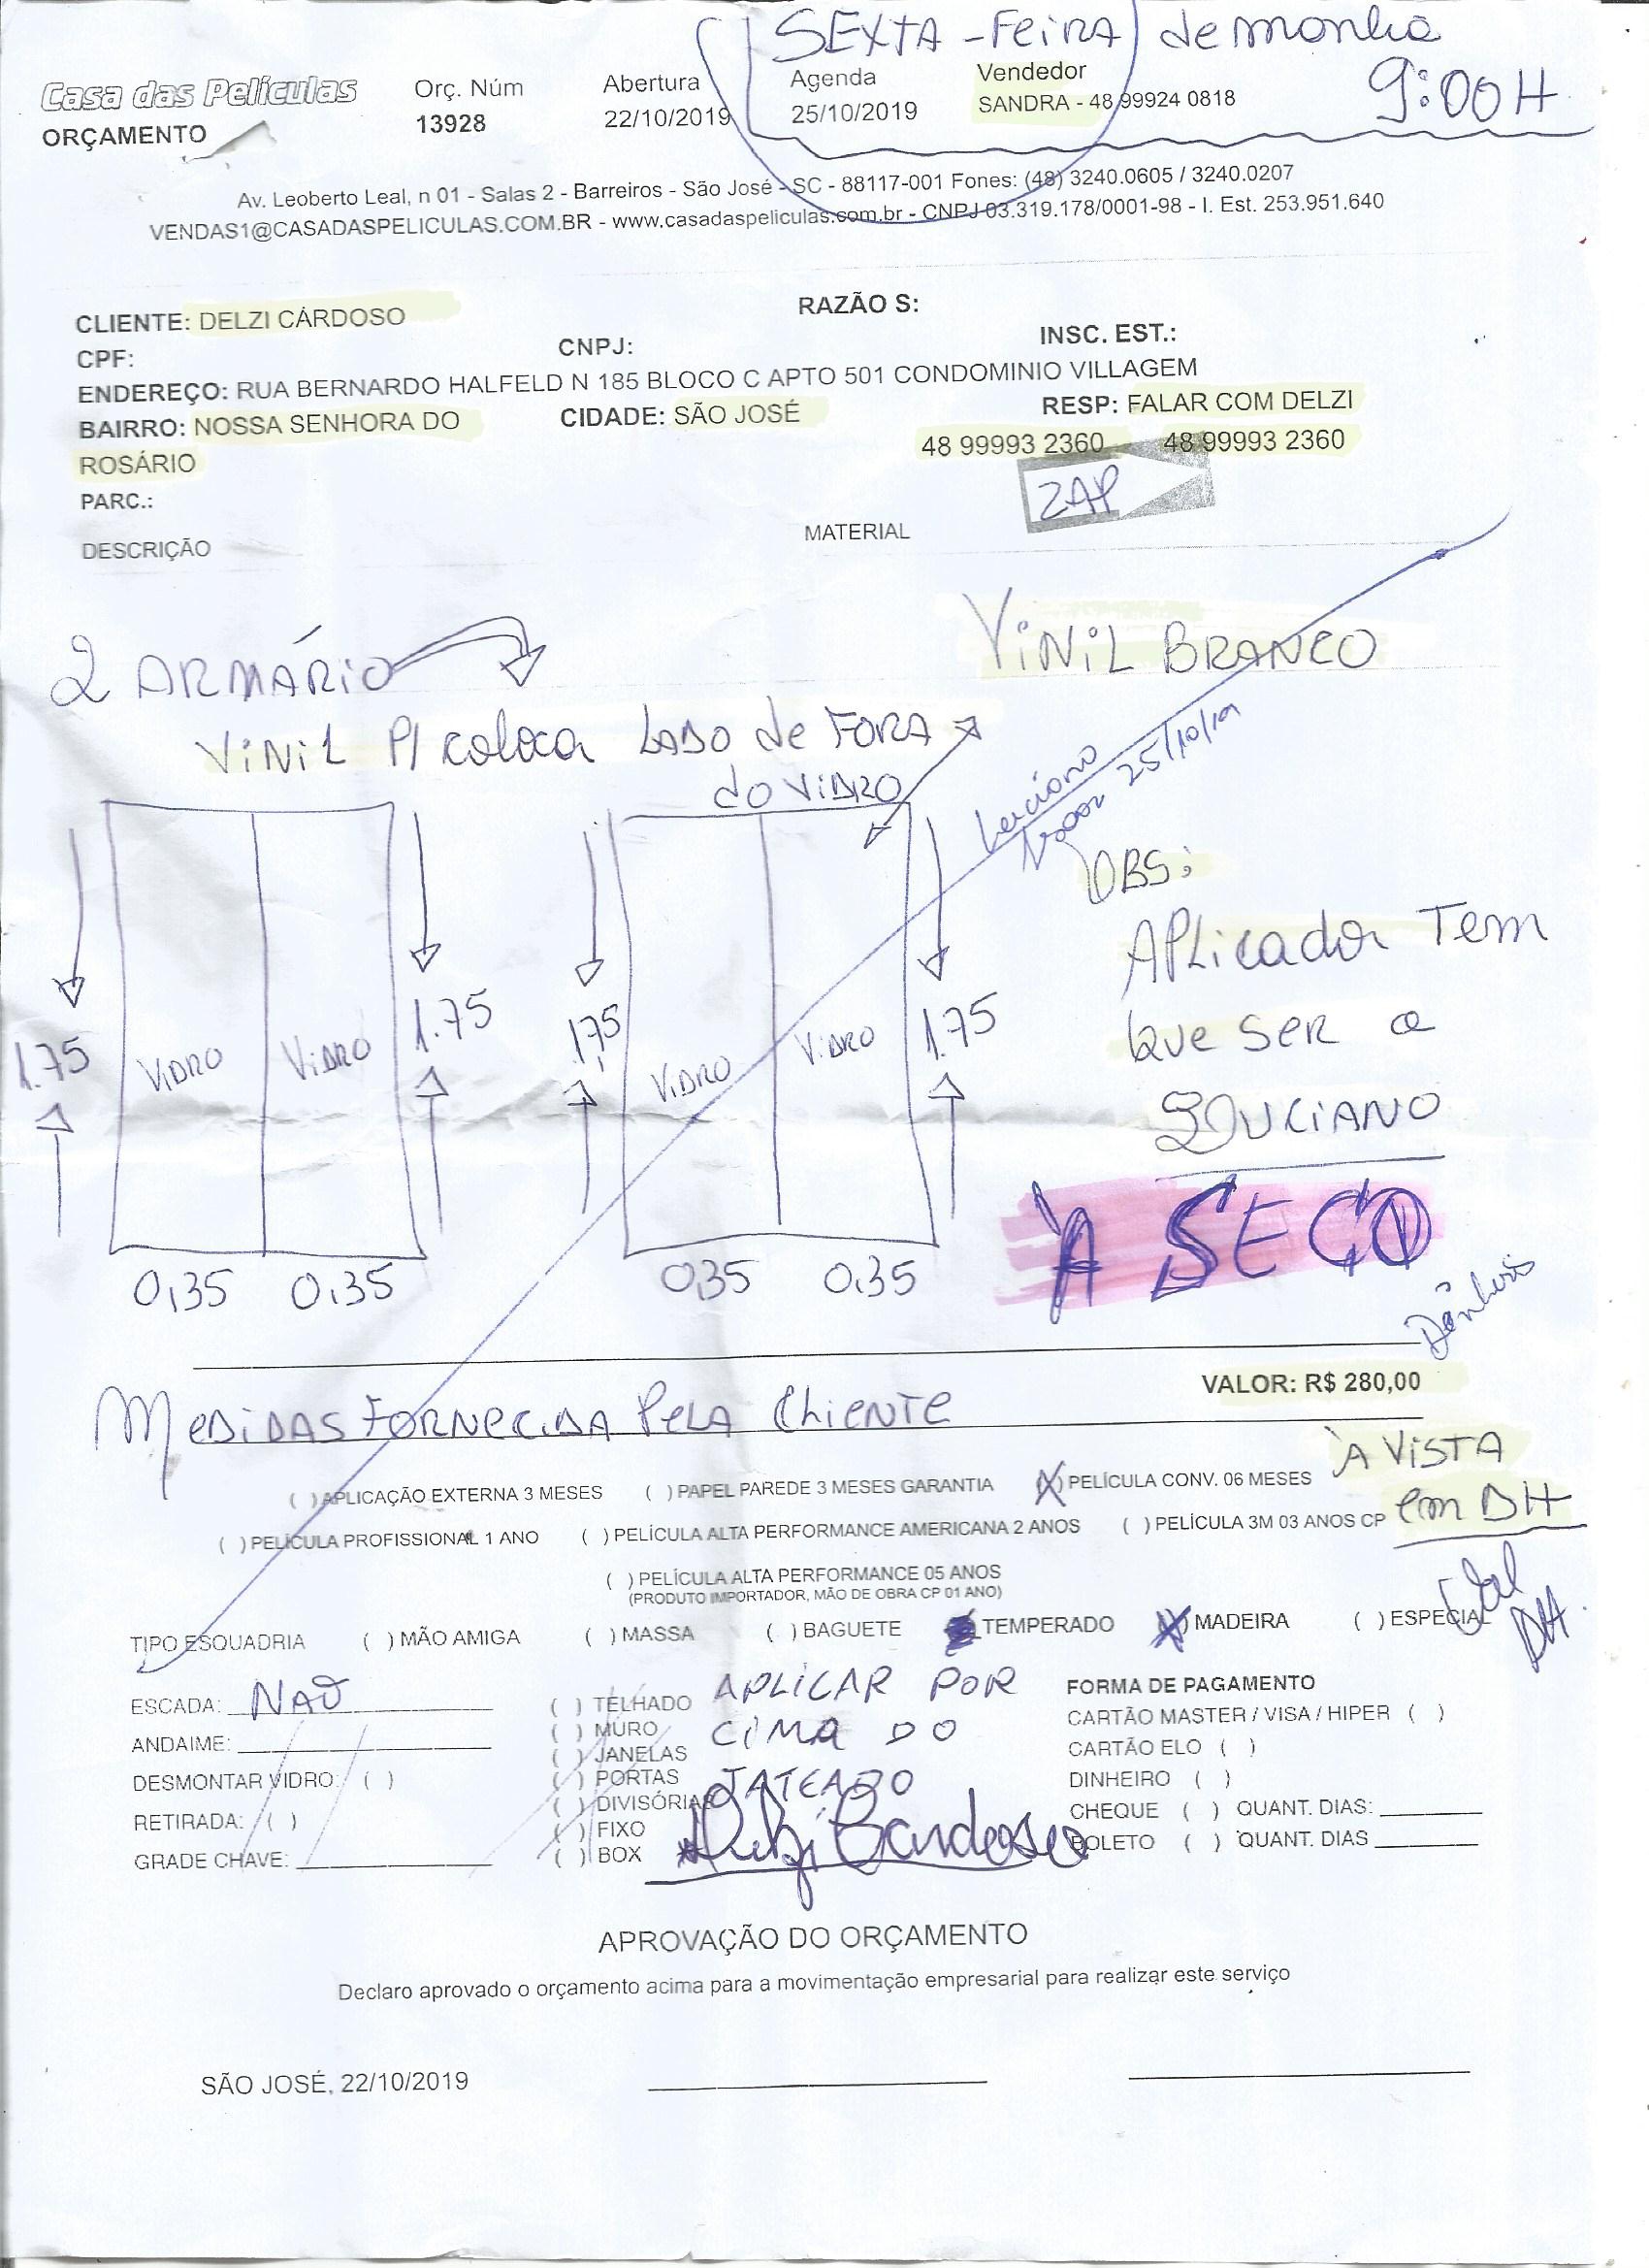 SEXTA-FEIRA de monhã
9:00H
Casa das Películas
ORÇAMENTO
Orç. Núm
13928
Abertura
22/10/2019
Agenda
25/10/2019
Vendedor
SANDRA - 48 99924 0818
Av. Leoberto Leal, n 01 - Salas 2 - Barreiros - São José - SC - 88117-001 Fones: (48) 3240.0605 / 3240.0207
VENDAS1@CASADASPELICULAS.COM.BR - www.casadaspeliculas.com.br - CNPJ 03.319.178/0001-98 - I. Est. 253.951.640
CLIENTE: DELZI CÁRDOSO
RAZÃO S:
CPF:
CNPJ:
INSC. EST.:
ENDEREÇO: RUA BERNARDO HALFELD N 185 BLOCO C APTO 501 CONDOMINIO VILLAGEM
BAIRRO: NOSSA SENHORA DO
ROSÁRIO
CIDADE: SÃO JOSÉ
RESP: FALAR COM DELZI
48 99993 2360 48 99993 2360
ZAP
PARC.:
DESCRIÇÃO
MATERIAL
2 ARMÁRIO
VINIL BRANCO
VINIL P/ coloca LADO de FORA
do VIDRO
Luciano
25/10/19
1.75 VIDRO VIDRO 1.75
1,75 VIDRO VIDRO 1.75
0,35 0.35
0,35 0.35
OBS:
APLicador Tem
que SER o
LUCIANO
À SECO
VALOR: R$ 280,00
MEDIDAS FORNECIDA PELA CLIENTE
À VISTA
em DH
( ) APLICAÇÃO EXTERNA 3 MESES ( ) PAPEL PAREDE 3 MESES GARANTIA (X) PELÍCULA CONV. 06 MESES
( ) PELÍCULA PROFISSIONAL 1 ANO ( ) PELÍCULA ALTA PERFORMANCE AMERICANA 2 ANOS ( ) PELÍCULA 3M 03 ANOS CP
( ) PELÍCULA ALTA PERFORMANCE 05 ANOS
(PRODUTO IMPORTADOR, MÃO DE OBRA CP 01 ANO)
DH
TIPO ESQUADRIA ( ) MÃO AMIGA ( ) MASSA ( ) BAGUETE TEMPERADO (X) MADEIRA ( ) ESPECIAL
ESCADA: NAO
ANDAIME:
DESMONTAR VIDRO: ( )
RETIRADA: ( )
GRADE CHAVE:
( ) TELHADO
( ) MURO
( ) JANELAS
( ) PORTAS
( ) DIVISÓRIAS
( ) FIXO
( ) BOX
APLICAR POR
CIMA DO
JATEADO
Delzi Cardoso
FORMA DE PAGAMENTO
CARTÃO MASTER / VISA / HIPER ( )
CARTÃO ELO ( )
DINHEIRO ( )
CHEQUE ( ) QUANT. DIAS:
BOLETO ( ) QUANT. DIAS
APROVAÇÃO DO ORÇAMENTO
Declaro aprovado o orçamento acima para a movimentação empresarial para realizar este serviço
SÃO JOSÉ, 22/10/2019